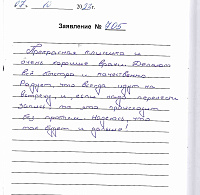 07. 10 2025г.
Заявление № 765
Прекрасная клиника и
очень хорошие врачи. Делают
всё быстро и качественно
Радует, что всегда идут на
встречу и, если надо перенести
запись то это происходит
без проблем. Надеюсь, что
так будет и дальше!